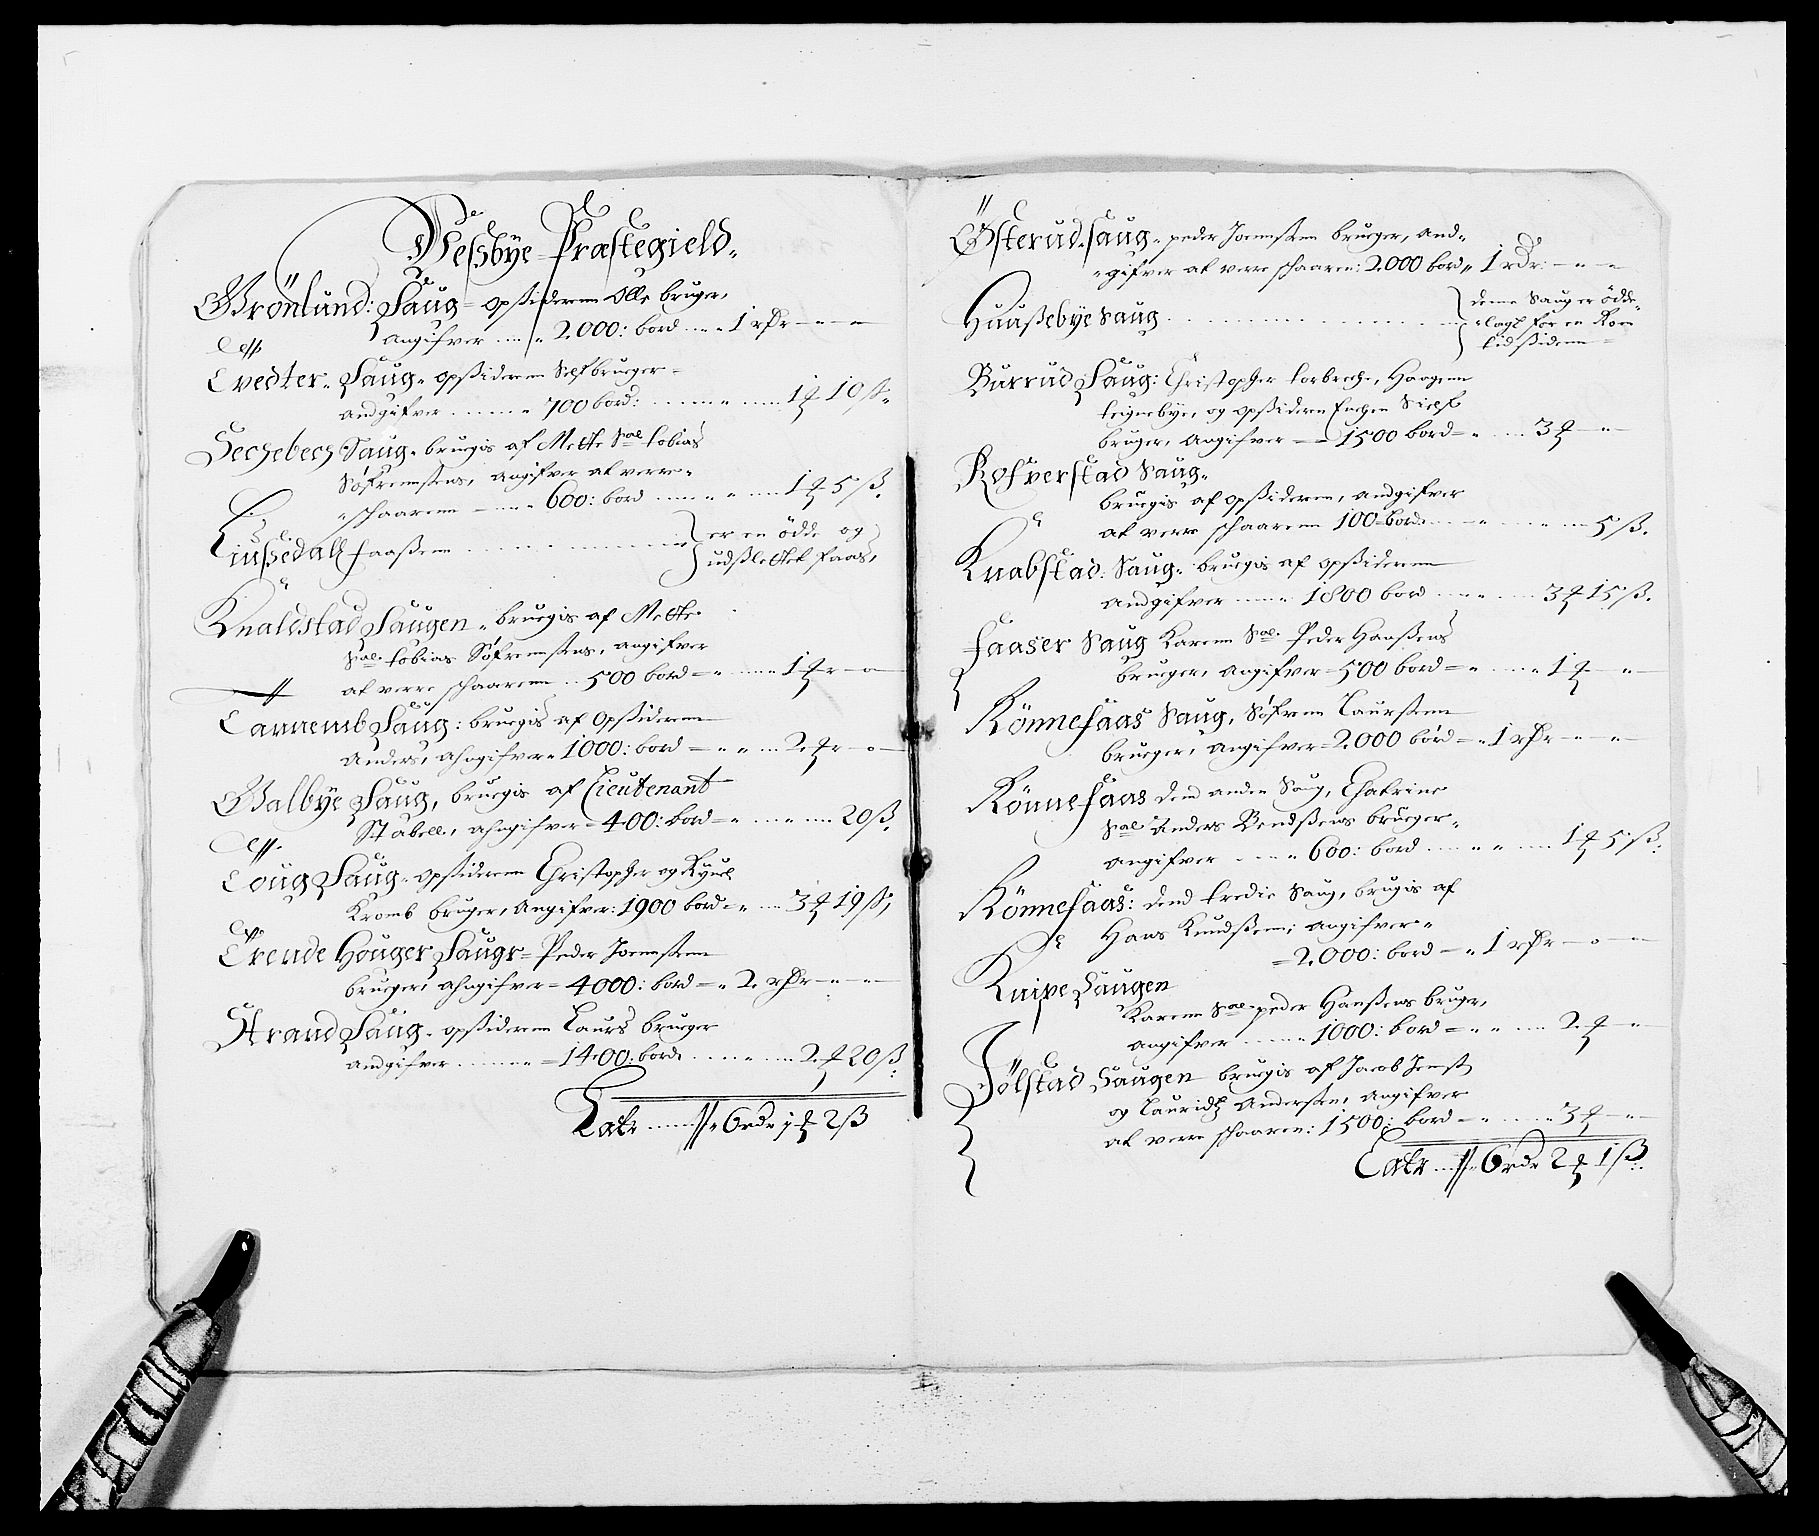 Nessbye Præstegield.
Grönlund: Saug - opsideren Olle bruger,
Angifver 2000: bord 1 rdr
Tvedter. Saug. opsideren Self bruger
Andgifver 700 bord: 1 ₰ 10 ß.
Bechebech Saug. brugis af Mette Sal Tobias
Söfrensens, angifver at verre
schaaren 600: bord 1 ₰ 5 ß.
Liußedall faaßen er en ödde og
udßlettet faas,
Knaldstad Saugen, brugis af Mette
Sal. Tobias Söfrensens, angifver
at verre schaaren 500 bord 1 ₰
Tannemb Saug: brugis af Opsideren
Anders, ahngifver 1000: bord 2 ₰
Galbye Saug, brugis af Lieutenant
Stabell, ahngifver 400: bord 20 ß.
Toug Saug. opsideren Christopher og
Kromb bruger, Angifver: 1900 bord 3 ₰ 19 ß,
Trende Houger Saugr Peder Joensen
bruger, ahngifver 4000: bord 2 rdr
Strand Saug. opsideren Laurs bruger
Andgifver 1400: bord 2 ₰ 20 ß
Latr 6 rdr 1 ₰ 2 ß
Österud Saug. peder Joensen bruger, And-
gifver at verre schaaren: 2000 bord 1 rdr:
Huußebye Saug denne Saug er ödde-
lagt for en Rom
tid siden
Burrud Saug: Christopher Torbrech, Haagen
Teignebye, og opsideren Enchen Sielf
bruger, Angifver 1500 bord 3 ₰
Rofverstad Saug.
brugis af opsideren, andgifver
at verre schaaren 100 bord 5 ß.
Knabstad: Saug. brugis af opsideren
Andgifver 1800 bord 3 ₰ 15 ß.
Faaser Saug Karen Sal. Peder Hanßens
bruger, angifver 500 bord 1 ₰
Könnefaas Saug, Söfren Laursen
bruger, Angifver 2000 bord 1 rdr
Könnefaas dend anden Saug, Chatrine
Sal Anders Bendßens bruger
angifver 600: bord 1 ₰ 5 ß:
Könnefaas: dend tredie Saug, brugis af
Hans Knudßen; angifver
2000: bord 1 rdr
Knipe Saugen
Karen Sal peder Hanßens bruger,
angifver 1000: bord 2 ₰
Jölstad Saugen brugis af Jacob Jens
og Lauridtz Andersen, Angifver
at verre schaaren: 1500: bord 3 ₰
Latr 6 rdr 2 ₰ 1 ß.